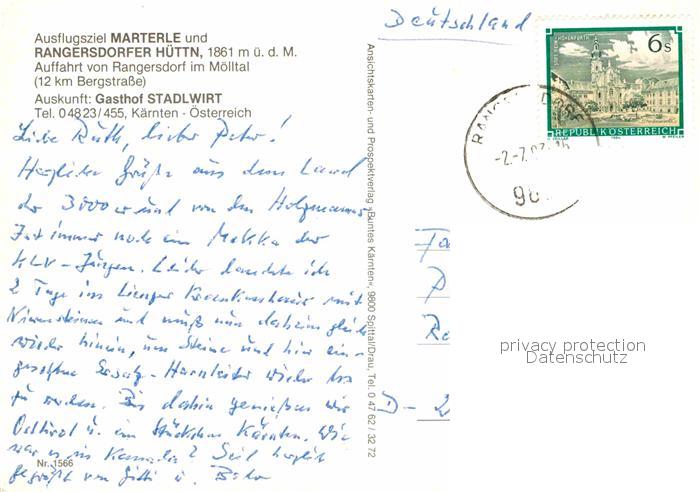 Ausflugsziel MARTERLE und
RANGERSDORFER HÜTTN, 1861 m ü. d. M.
Auffahrt von Rangersdorf im Mölltal
(12 km Bergstraße)
Auskunft: Gasthof STADLWIRT
Tel. 0 48 23/455, Kärnten - Österreich
Liebe Ruth, lieber Peter!
Herzliche Grüße aus dem Land
der 3000er und von den
Ist immer noch ein Mekka der
KLV-Jungen. Leider landete ich
2 Tage im Lienzer Krankenhaus mit
Nierensteinen und muß nun daheim gleich
wieder hinein, um Steine und hier ein-
wieder los
zu werden. Bis dahin genießen wir
Osttirol u. ein Stückchen Kärnten. Wie
war es in Kanada? Seid herzlich
gegrüßt von u.
Nr. 1566
Ansichtskarten- und Prospektverlag »Buntes Kärnten«, 9800 Spittal/Drau, Tel. 0 47 62 / 32 72
Deutschland
STIFT REIN-HOHENFURTH
6 s
REPUBLIK ÖSTERREICH
D - 2
privacy protection
Datenschutz